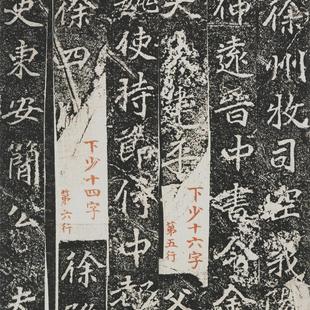 徐州牧司空義
仲遠晉中書令金
夫
下少十六字
第五行
父
使持節侍中
徐四
下少十四字
第六行
徐
史東安簡公夫